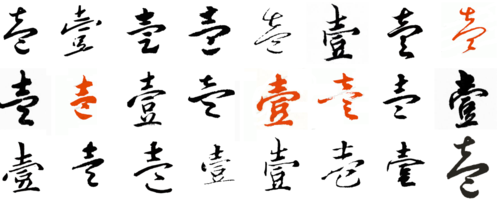 壹壹壹壹壹壹壹壹
壹壹壹壹壹壹壹壹
壹壹壹壹壹壹壹壹